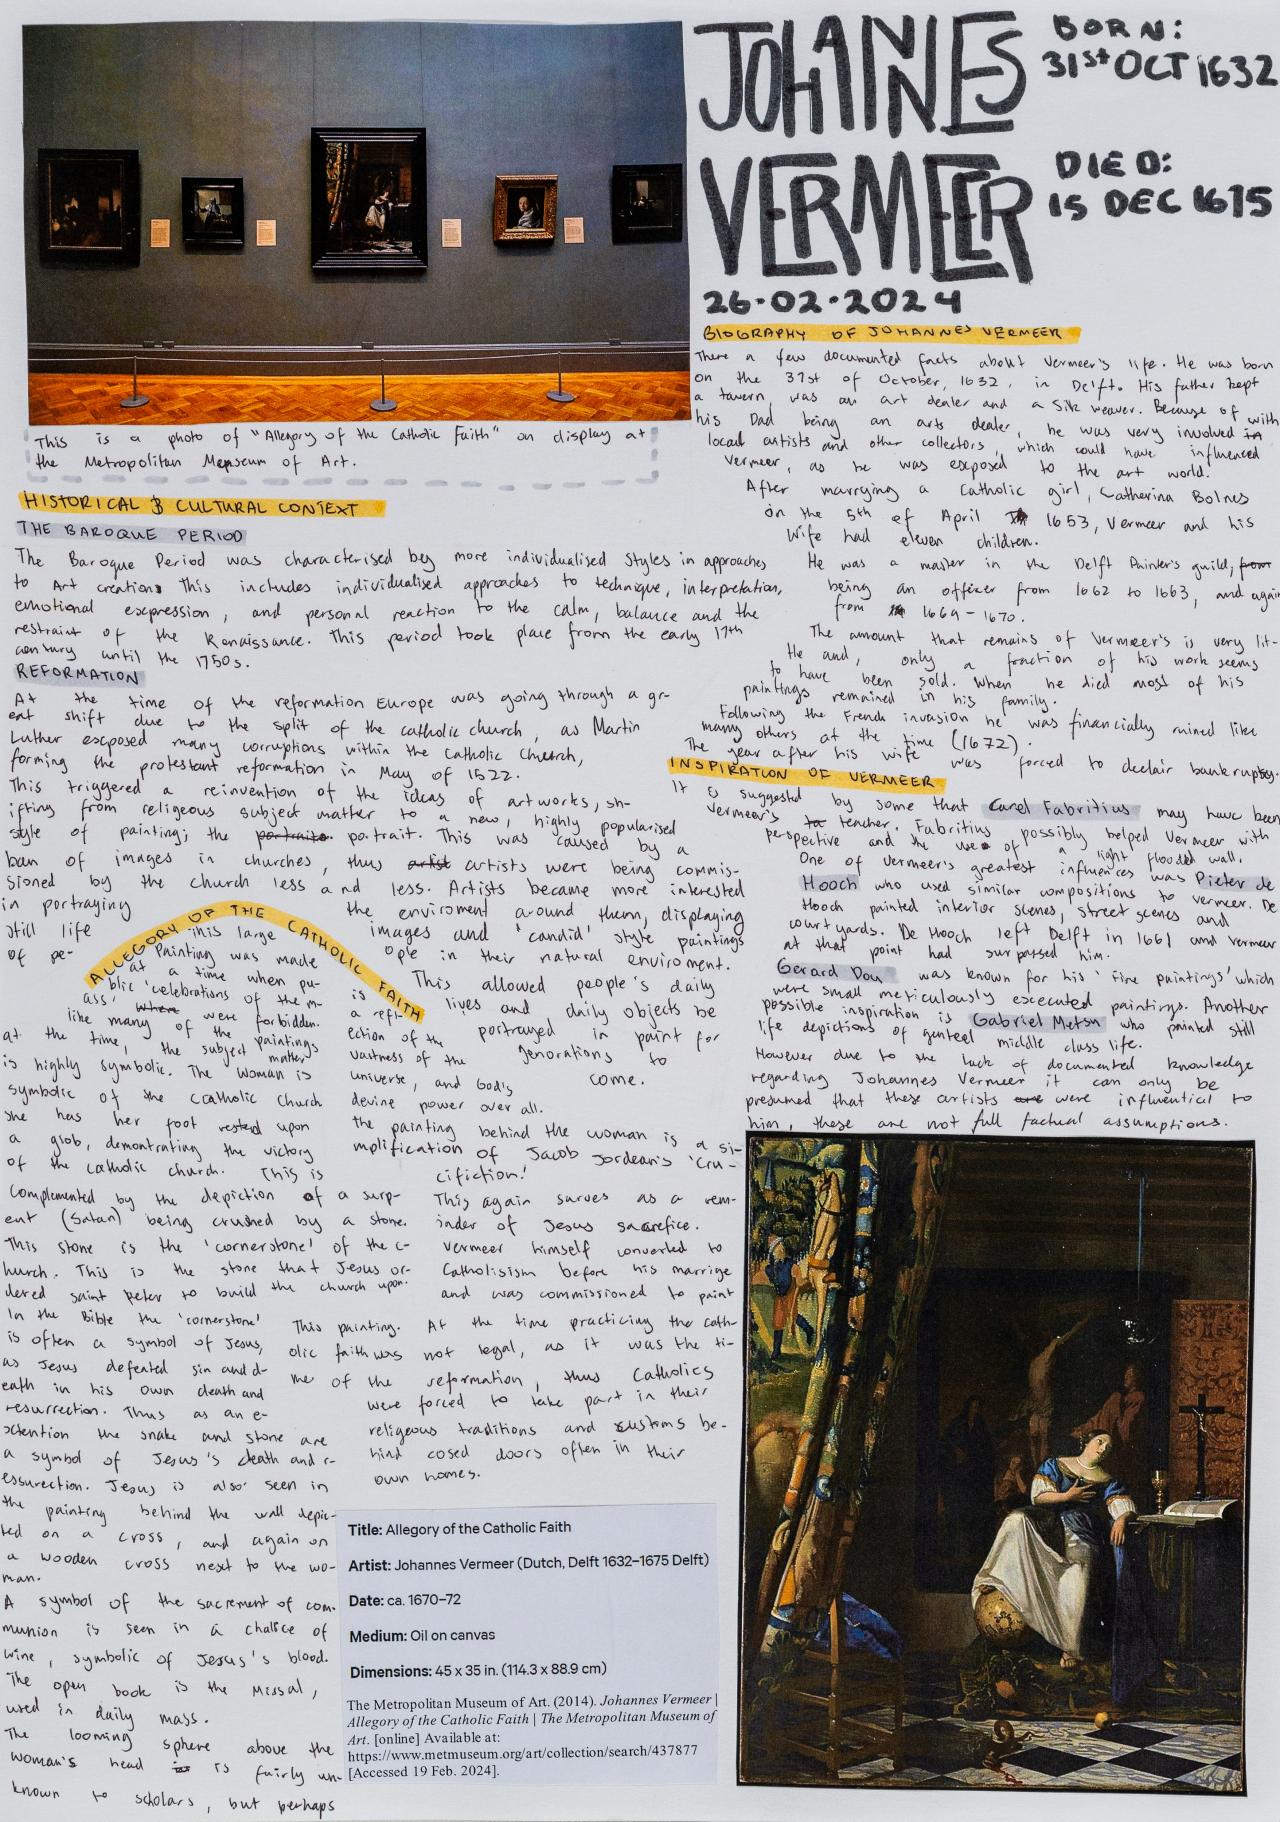 JOHANNES
VERMEER
BORN:
31st OCT 1632
DIED:
15 DEC 1675
26·02·2024
This is a photo of "Allegory of the Catholic Faith" on display at
the Metropolitan Meuseum of Art.
BIOGRAPHY OF JOHANNES VERMEER
There a few documented facts about Vermeer's life. He was born
on the 31st of October, 1632, in Delft. His father kept
a tavern, was an art dealer and a silk weaver. Because of with
his Dad being an arts dealer, he was very involved in
local artists and other collectors, which could have influenced
Vermeer, as he was exposed to the art world.
After marrying a Catholic girl, Catherina Bolnes
on the 5th of April 1653, Vermeer and his
Wife had eleven children.
He was a master in the Delft Painter's guild, from
being an officer from 1662 to 1663, and again
from 1669-1670.
The amount that remains of Vermeer's is very lit-
tle and, only a fraction of his work seems
to have been sold. When he died most of his
paintings remained in his family.
Following the French invasion he was financially ruined like
many others at the time (1672).
The year after his wife was forced to declair bankruptsy.
HISTORICAL & CULTURAL CONTEXT
THE BAROQUE PERIOD
The Baroque Period was characterised by more individualised styles in approaches
to Art creation. This includes individualised approaches to technique, interpretation,
emotional expression, and personal reaction to the calm, balance and the
restraint of the Renaissance. This period took place from the early 17th
century until the 1750s.
REFORMATION
At the time of the reformation Europe was going through a gr-
eat shift due to the split of the catholic church, as Martin
Luther exposed many corruptions within the Catholic Church,
forming the protestant reformation in May of 1522.
This triggered a reinvention of the ideas of artworks, sh-
ifting from religeous subject matter to a new, highly popularised
style of painting; the portraits portrait. This was caused by a
ban of images in churches, thus artist artists were being commis-
sioned by the church less and less. Artists became more interested
in portraying the enviroment around them, displaying
still life images and 'candid' style paintings
of pe- ople in their natural enviroment.
This allowed people's daily
lives and daily objects be
portrayed in paint for
genorations to
come.
INSPIRATION OF VERMEER
It is suggested by some that Carel Fabritius may have been
Vermeer's to teacher. Fabritius possibly helped Vermeer with
perspective and the use of a light flooded wall.
One of Vermeer's greatest influences was Pieter de
Hooch who used similar compositions to vermeer. De
Hooch painted interior scenes, street scenes and
courtyards. De Hooch left Delft in 1661 and vermeer
at that point had surpassed him.
Gerard Dou was known for his 'fine paintings' which
were small meticulously excecuted paintings. Another
possible inspiration is Gabriel Metsu who painted still
life depictions of genteel middle class life.
However due to the lack of documented knowledge
regarding Johannes Vermeer it can only be
presumed that these artists are were influential to
him, these are not full factual assumptions.
ALLEGORY OF THE CATHOLIC FAITH
This large
Painting was made
at a time when pu-
blic 'celebrations of the m-
ass' when were forbidden.
like many of the paintings
at the time, the subject matter
is highly symbolic. The woman is
symbolic of the Ccatholic Church
She has her foot rested upon
a glob, demontrating the victory
of the catholic church. This is
complemented by the depiction of a surp-
ent (Satan) being crushed by a stone.
This stone is the 'cornerstone' of the c-
hurch. This is the stone that Jesus or-
dered saint peter to build the church upon.
In the Bible the 'cornerstone'
is often a symbol of Jesus,
as Jesus defeated sin and d-
eath in his own death and
resurrection. Thus as an e-
xtention the snake and stone are
a symbol of Jesus's death and r-
essurection. Jesus is also seen in
the painting behind the wall depic-
ted on a cross, and again on
a wooden cross next to the wo-
man.
A symbol of the sacrement of com-
munion is seen in a chalice of
wine, symbolic of Jesus's blood.
The open book is the Missal,
used in daily mass.
The looming sphere above the
woman's head is is fairly un-
known to scholars, but perhaps
is
a refl-
ection of the
vastness of the
universe, and God's
devine power over all.
the painting behind the woman is a si-
mplification of Jacob Jordean's 'Cru-
cifiction'
This again surves as a rem-
inder of Jesus sacrefice.
Vermeer himself converted to
Catholisism before his marrige
and was commissioned to paint
This painting. At the time practicing the cath-
olic faith was not legal, as it was the ti-
me of the reformation, thus Catholics
were forced to take part in their
religeous traditions and customs be-
hind cosed doors often in their
own homes.
Title: Allegory of the Catholic Faith
Artist: Johannes Vermeer (Dutch, Delft 1632–1675 Delft)
Date: ca. 1670–72
Medium: Oil on canvas
Dimensions: 45 x 35 in. (114.3 x 88.9 cm)
The Metropolitan Museum of Art. (2014). Johannes Vermeer |
Allegory of the Catholic Faith | The Metropolitan Museum of
Art. [online] Available at:
https://www.metmuseum.org/art/collection/search/437877
[Accessed 19 Feb. 2024].